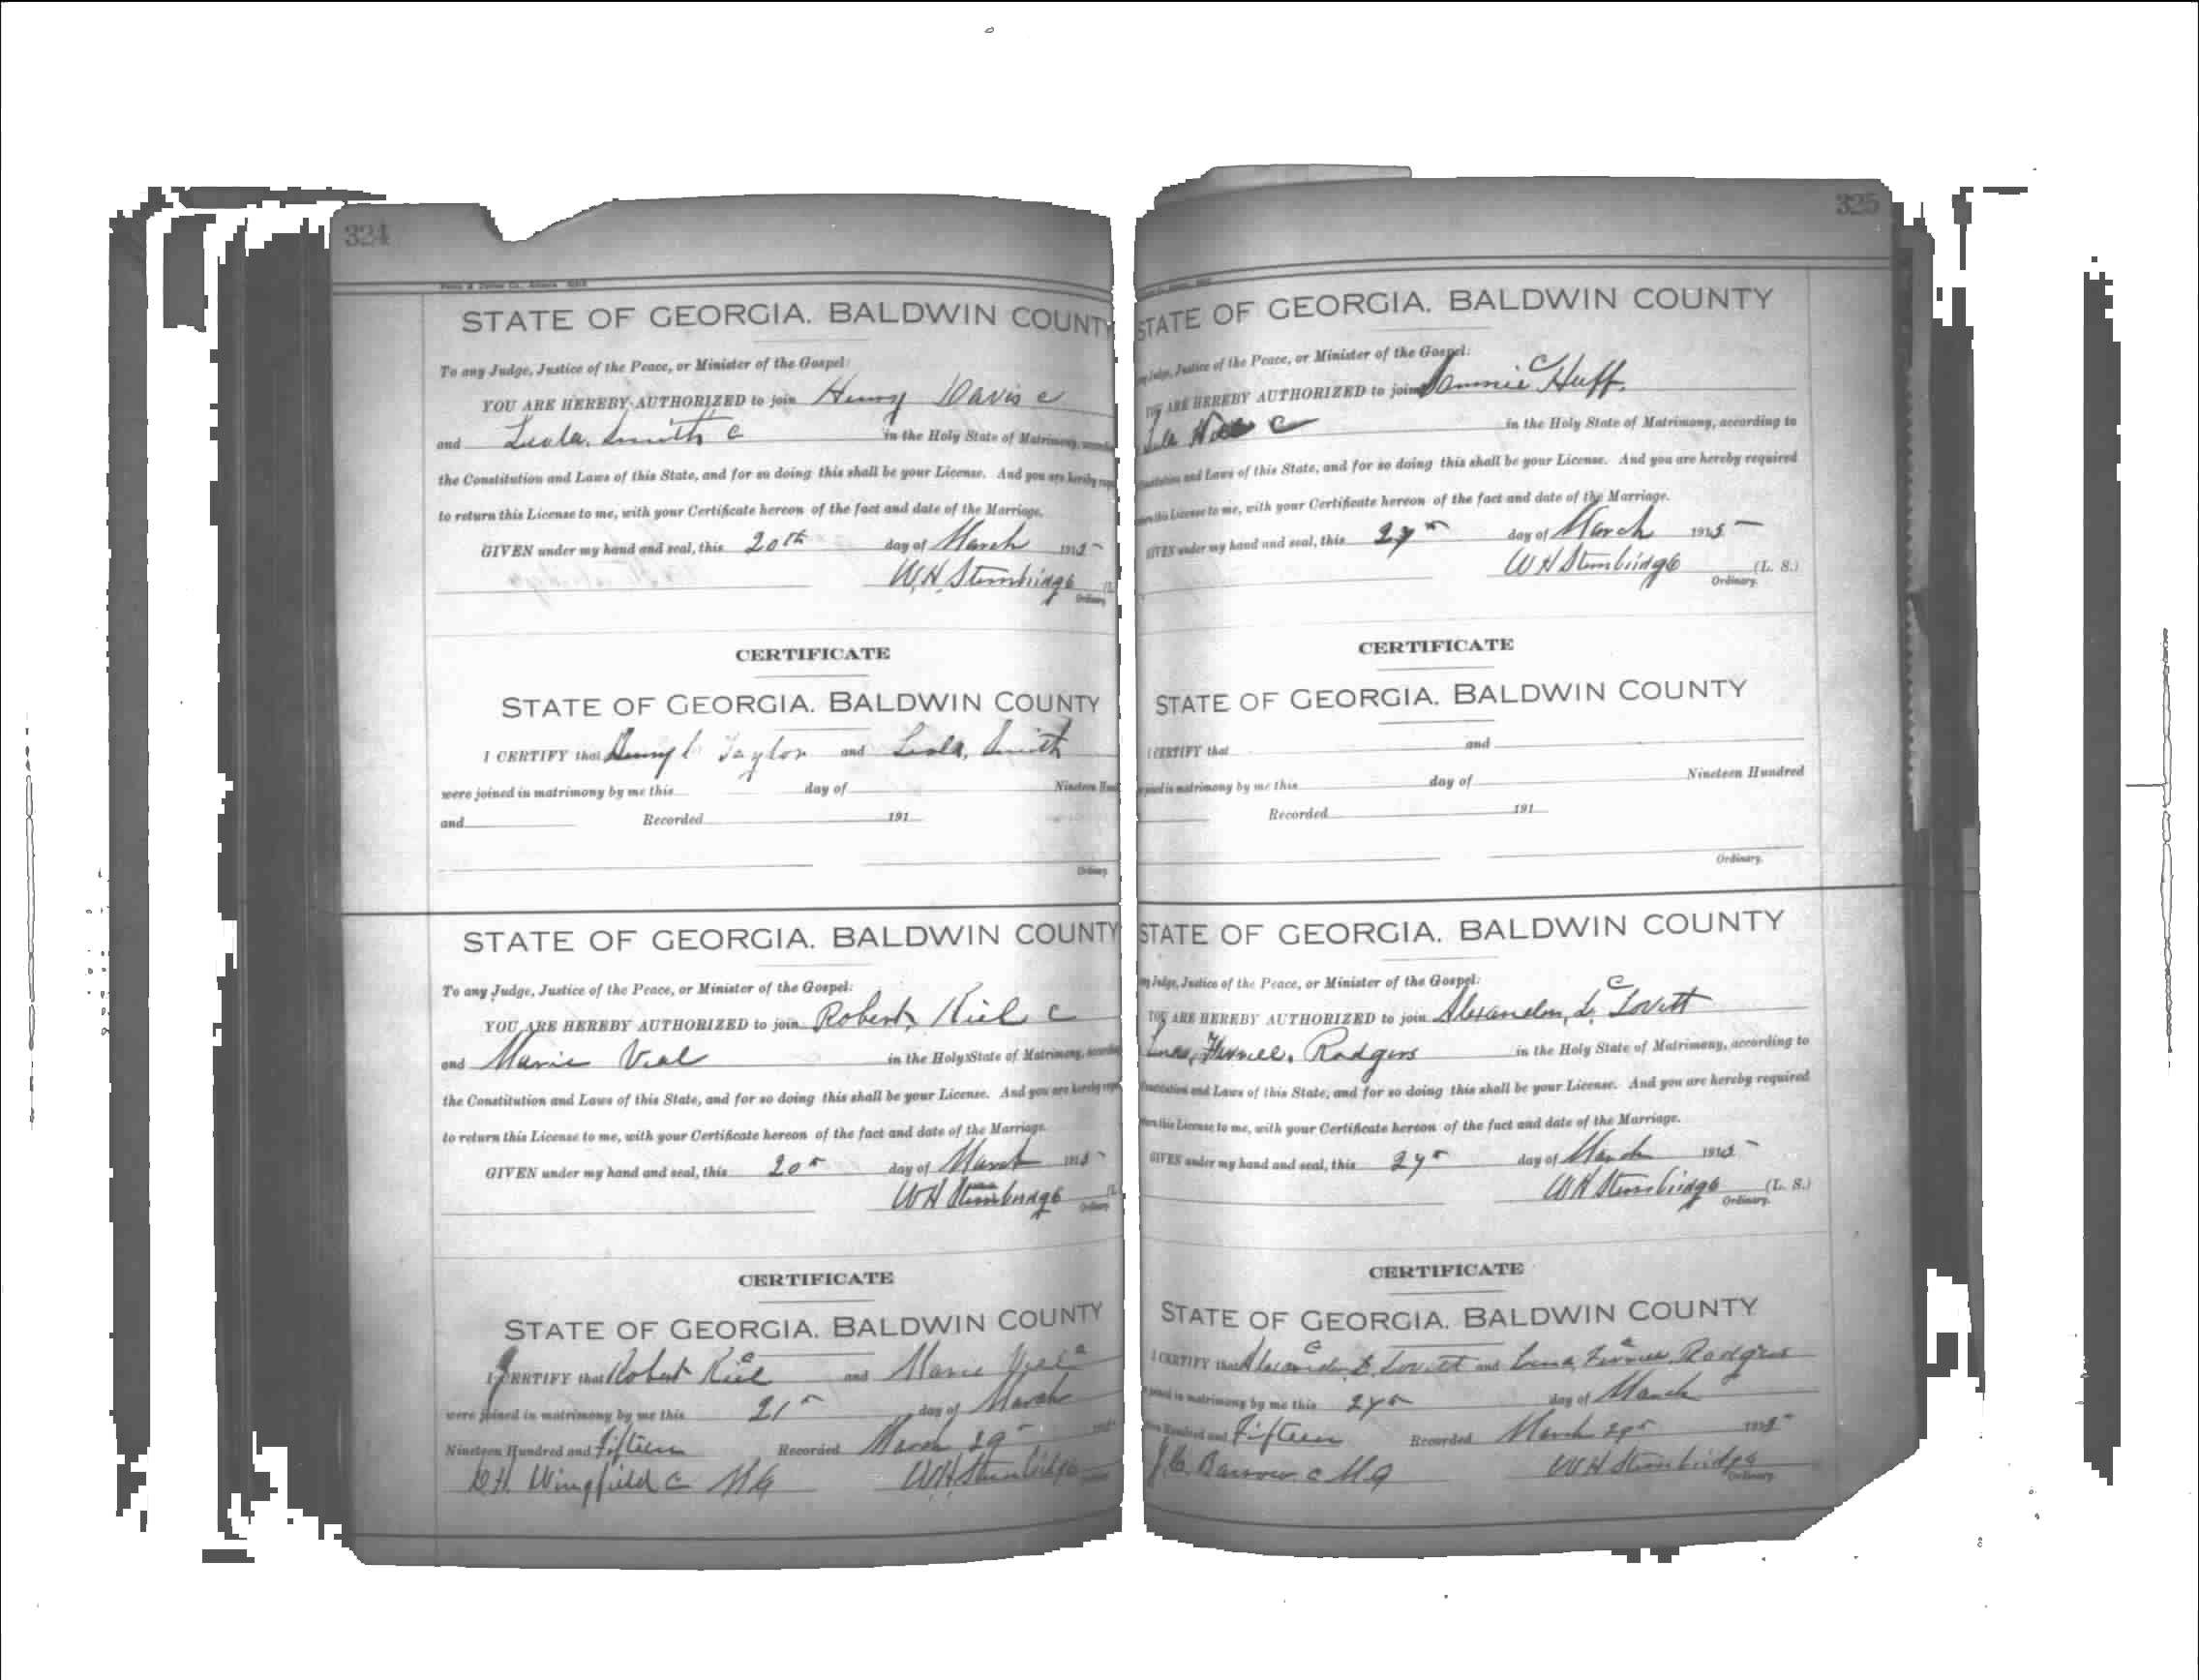 324
STATE OF GEORGIA. BALDWIN COUNTY
To any Judge, Justice of the Peace, or Minister of the Gospel:
YOU ARE HEREBY AUTHORIZED to join Henry Davis c
and Leola Smith c in the Holy State of Matrimony,
the Constitution and Laws of this State, and for so doing this shall be your License. And you are hereby
to return this License to me, with your Certificate hereon of the fact and date of the Marriage.
GIVEN under my hand and seal, this 20th day of March 1915
W.H. Stembridge
Ordinary
CERTIFICATE
STATE OF GEORGIA. BALDWIN COUNTY
I CERTIFY that Henry Taylor and Leola, Smith
were joined in matrimony by me this day of Nineteen
and Recorded 191
Ordinary
STATE OF GEORGIA. BALDWIN COUNTY
To any Judge, Justice of the Peace, or Minister of the Gospel:
YOU ARE HEREBY AUTHORIZED to join Robert Kiel c
and Marie Veal in the Holy State of Matrimony,
the Constitution and Laws of this State, and for so doing this shall be your License. And you are hereby
to return this License to me, with your Certificate hereon of the fact and date of the Marriage.
GIVEN under my hand and seal, this 20th day of March 1915
W H Stembridge
Ordinary
CERTIFICATE
STATE OF GEORGIA. BALDWIN COUNTY
I CERTIFY that Robert Kiel c and Marie c
were joined in matrimony by me this 21st day of March
Nineteen Hundred and Fifteen Recorded March 29
Wingfield c M G W.H. Stembridge
325
STATE OF GEORGIA. BALDWIN COUNTY
Judge, Justice of the Peace, or Minister of the Gospel:
YOU ARE HEREBY AUTHORIZED to join c Huff.
c in the Holy State of Matrimony, according to
and Laws of this State, and for so doing this shall be your License. And you are hereby required
this License to me, with your Certificate hereon of the fact and date of the Marriage.
GIVEN under my hand and seal, this 27th day of March 1915
W H Stembridge (L. S.)
Ordinary.
CERTIFICATE
STATE OF GEORGIA. BALDWIN COUNTY
I CERTIFY that and
joined in matrimony by me this day of Nineteen Hundred
Recorded 191
Ordinary.
STATE OF GEORGIA. BALDWIN COUNTY
Judge, Justice of the Peace, or Minister of the Gospel:
YOU ARE HEREBY AUTHORIZED to join Alexander, L. c Lovett
Rodgers in the Holy State of Matrimony, according to
and Laws of this State, and for so doing this shall be your License. And you are hereby required
this License to me, with your Certificate hereon of the fact and date of the Marriage.
GIVEN under my hand and seal, this day of March 1915
W H Stembridge (L. S.)
Ordinary.
CERTIFICATE
STATE OF GEORGIA. BALDWIN COUNTY
I CERTIFY that Alexander c Lovett and Rodgers
joined in matrimony by me this day of March
Hundred and Fifteen Recorded March 1915
Barrow c M G W H Stembridge
Ordinary.